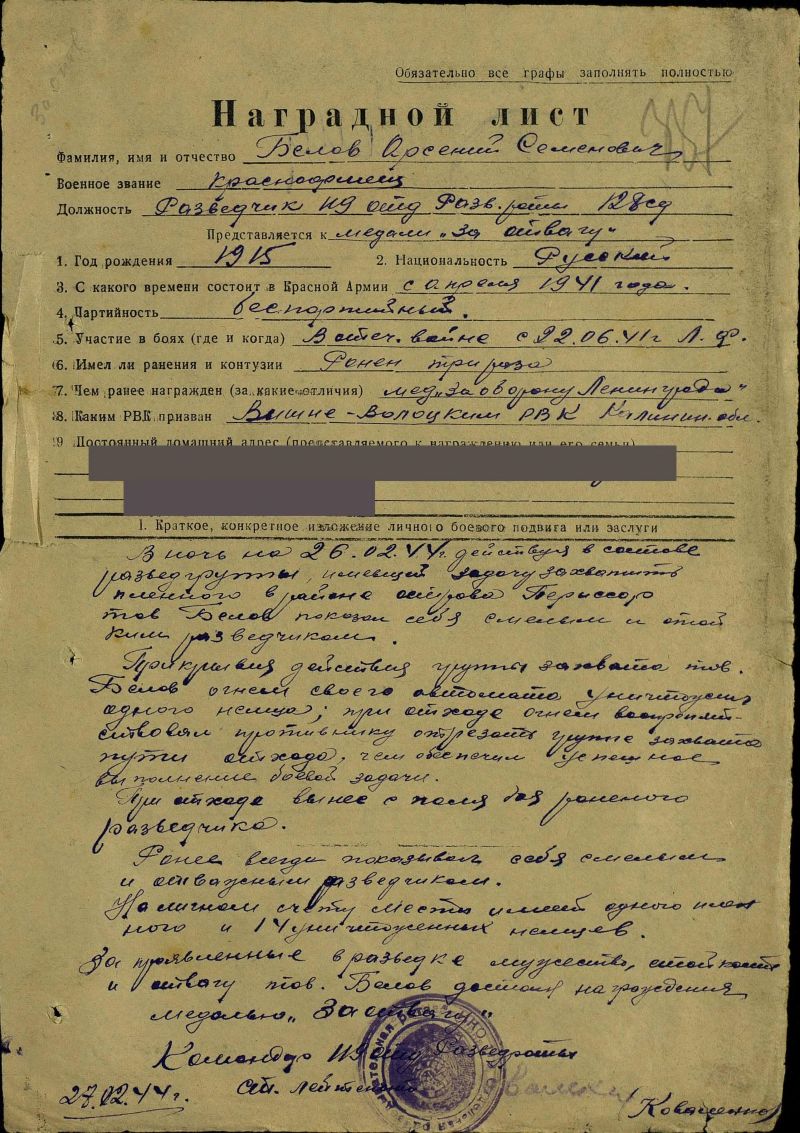 За отв
Обязательно все графы заполнять полностью
Наградной лист
357
Фамилия, имя и отчество Белов Арсений Семенович
Военное звание Красноармеец
Должность Разведчик 119 отд Разв. роты 128 сд
Представляется к медали „За отвагу“
1. Год рождения 1915 2. Национальность Русский
3. С какого времени состоит в Красной Армии с апреля 1941 года.
4. Партийность беспартийный.
5. Участие в боях (где и когда) В отеч. войне с 22.06.41г Л.Ф.
6. Имел ли ранения и контузии Ранен три раза
7. Чем ранее награжден (за какие отличия) мед „за оборону Ленинграда“
8. Каким РВК призван Вишне-Волоцким РВК Калинин. обл.
9 Постоянный домашний адрес (представляемого к награждению или его семьи)
I. Краткое, конкретное изложение личного боевого подвига или заслуги
В ночь на 26.02.44г. действуя в составе
разведгруппы, имевшей задачу захватить
пленного в районе острова Периссар
тов Белов показал себя смелым и стой
ким разведчиком.
Прикрывая действия группы захвата тов.
Белов огнем своего автомата уничтожил
одного немца; при отходе огнем воспрепят-
ствовал противнику отрезать группе захвата
пути отхода, чем обеспечил успешное
выполнение боевой задачи.
При отходе вынес с поля боя раненого
разведчика.
Ранее всегда показывал себя смелым
и отважным разведчиком.
На личном счету мести имеет одного плен
ного и 14 уничтоженных немцев.
За проявленные в разведке мужество, стойкость
и отвагу тов. Белов достоин награждения
медалью „За отвагу“
Командир 119 отд Разведроты
ст. лейтенант
27.02.44г.
(Коваленко)